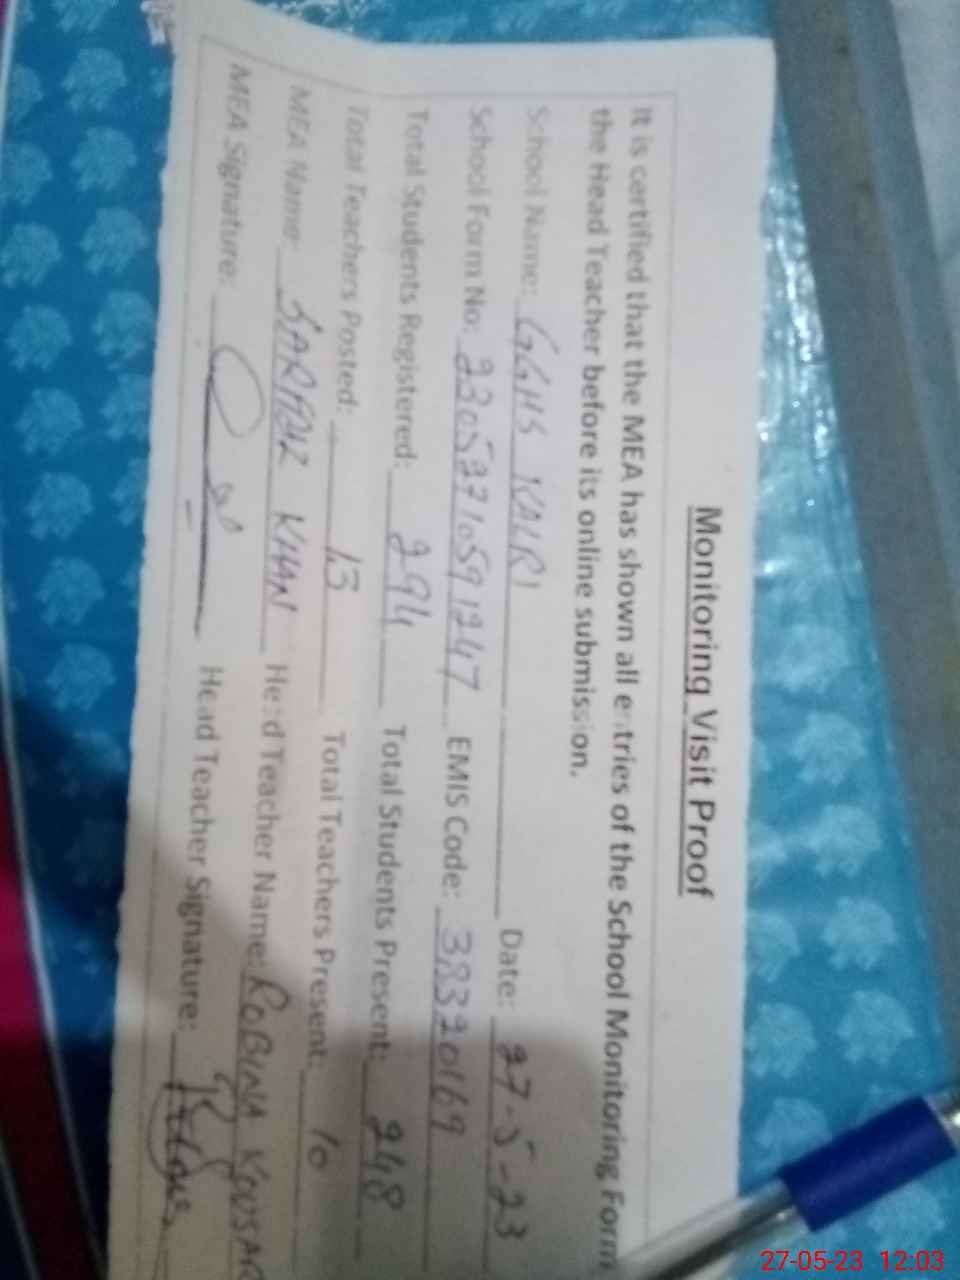 Monitoring Visit Proof
It is certified that the MEA has shown all entries of the School Monitoring Form
the Head Teacher before its online submission.
School Name: GGHS KALRI Date: 27-5-23
School Form No: 23052710591247 EMIS Code: 38320169
Total Students Registered: 294 Total Students Present: 248
Total Teachers Posted: 13 Total Teachers Present: 10
MEA Name: KHAN Head Teacher Name: ROBINA
MEA Signature: Head Teacher Signature:
27-05-23 12:03